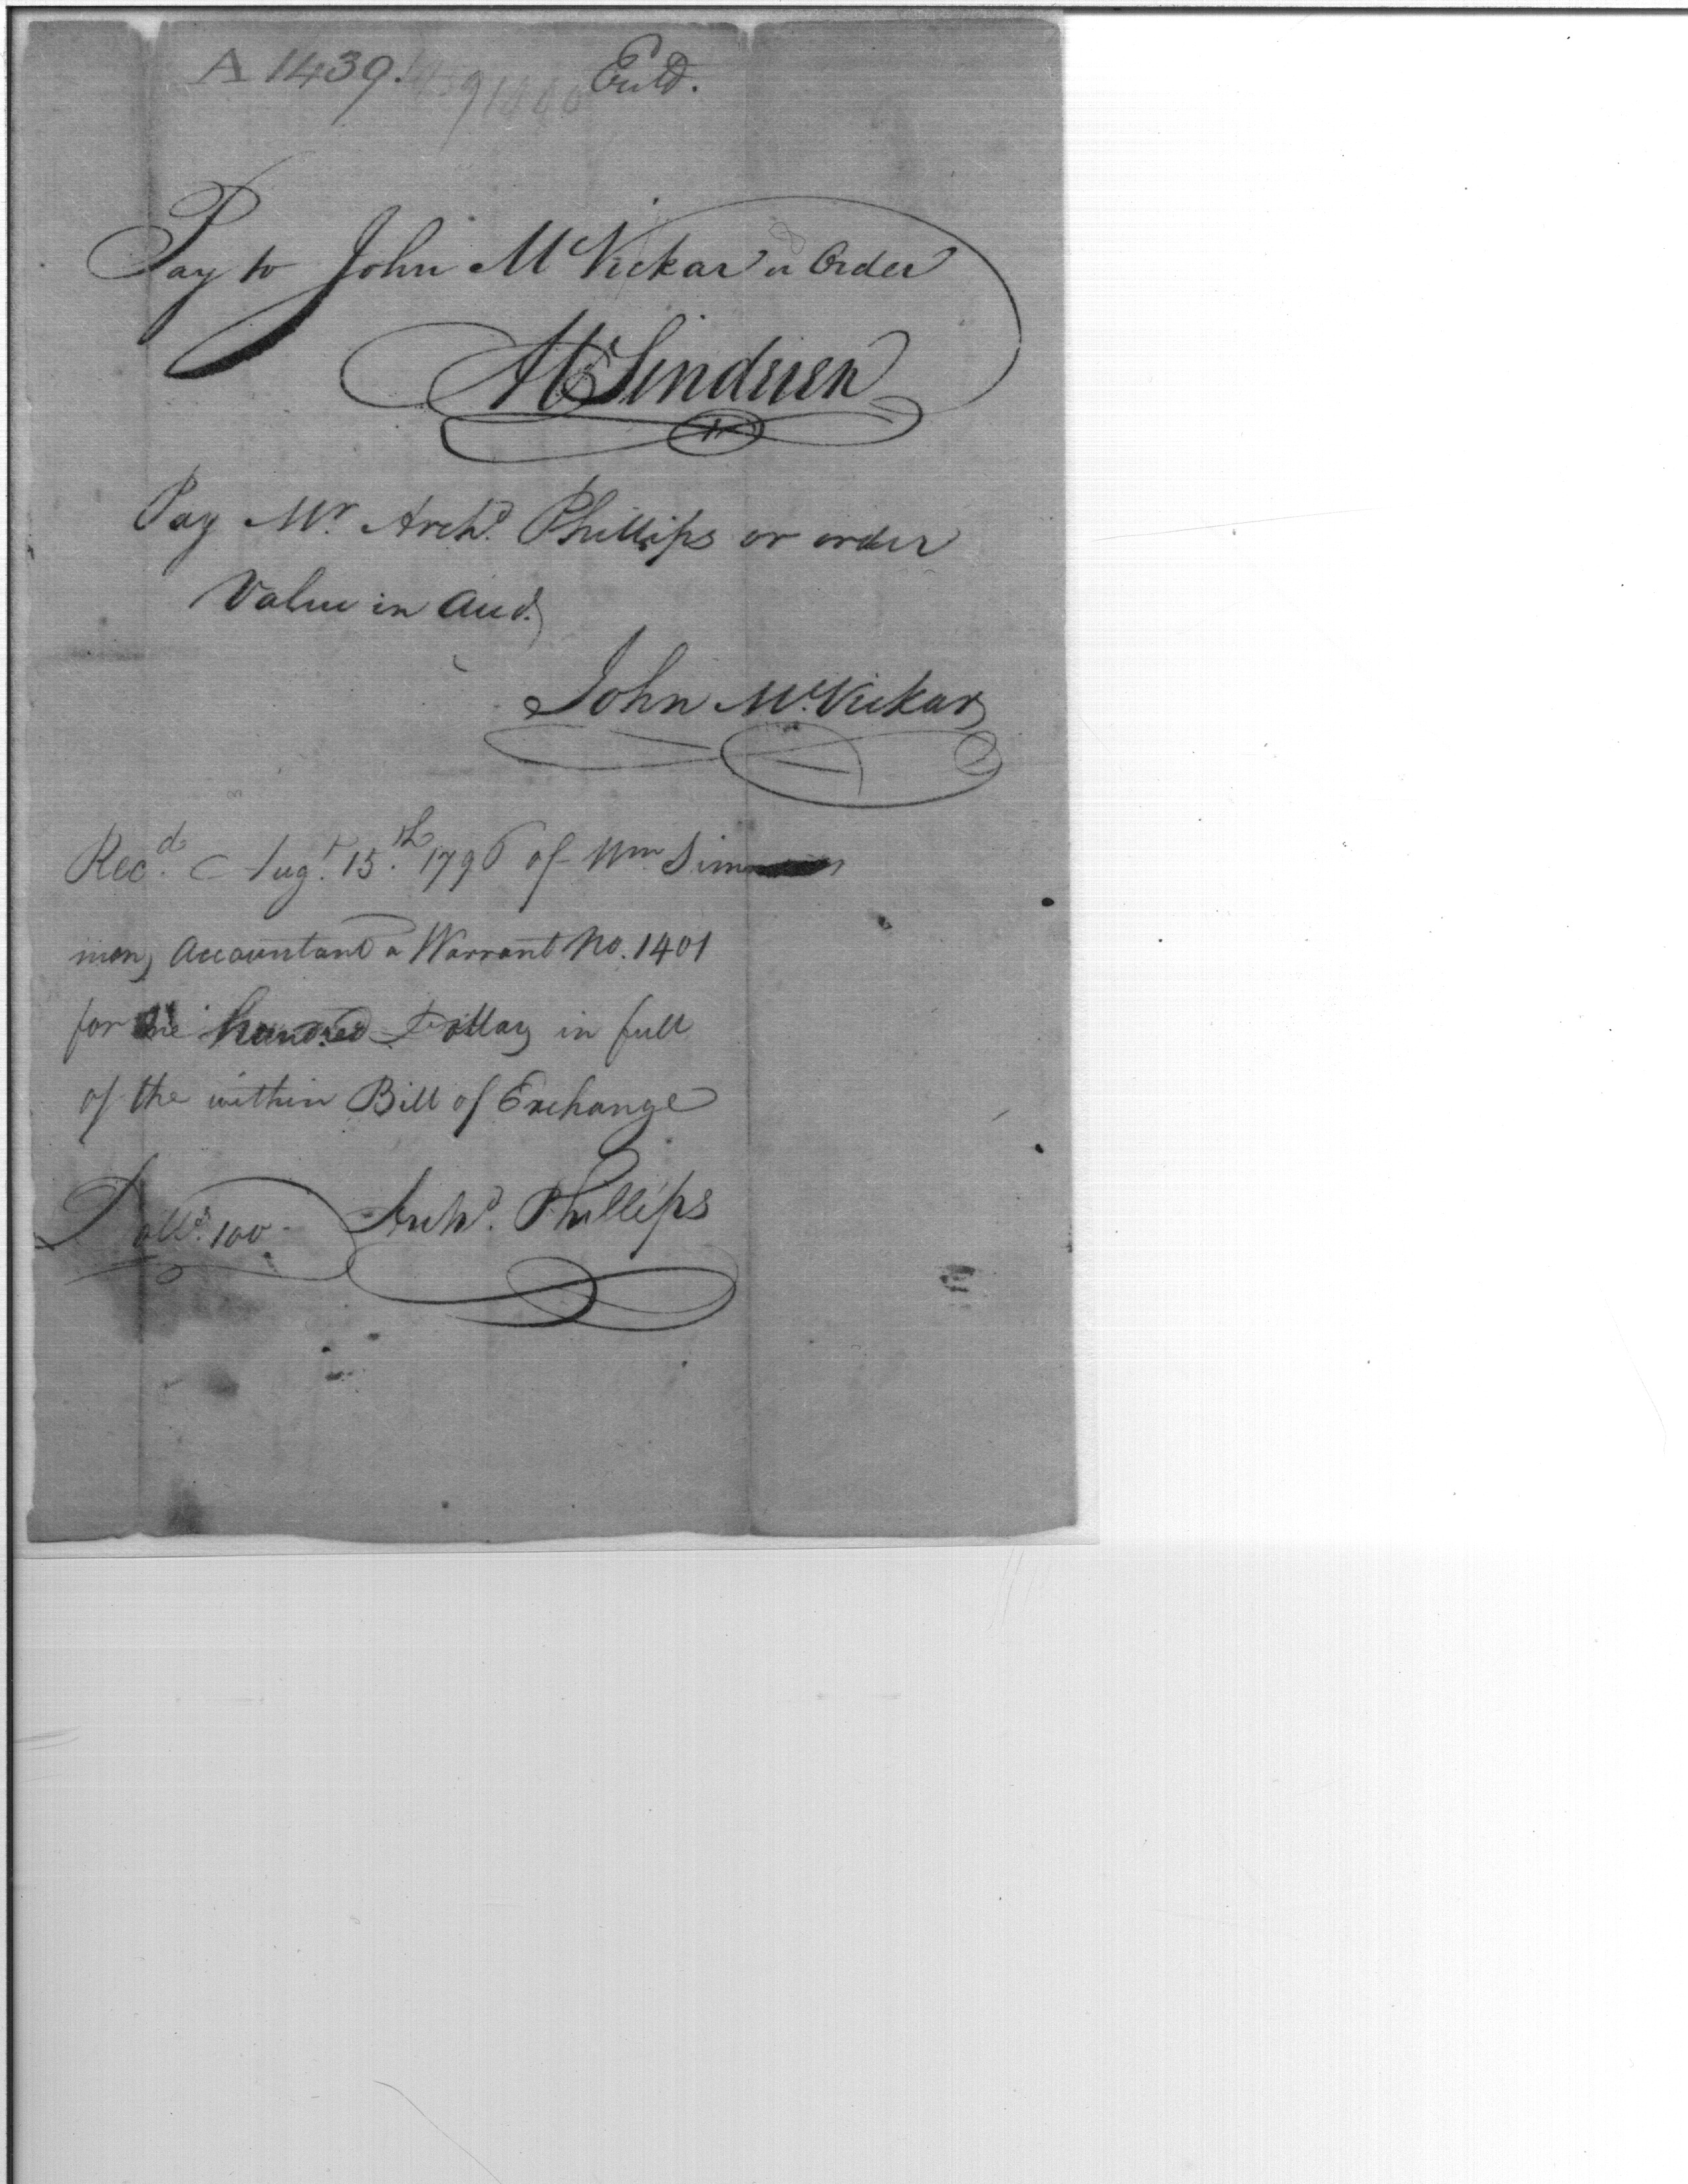 A 1439. Entd.
Pay to John McVickar or Order
Pay Mr. Archd. Phillips or order
Value in Acct.
John McVickar
Recd. Augt. 15th. 1796 of Wm Sim
mons, Accountant a Warrant No. 1401
for one hundred Dollars in full
of the within Bill of Exchange
Dolls. 100 Archd. Phillips